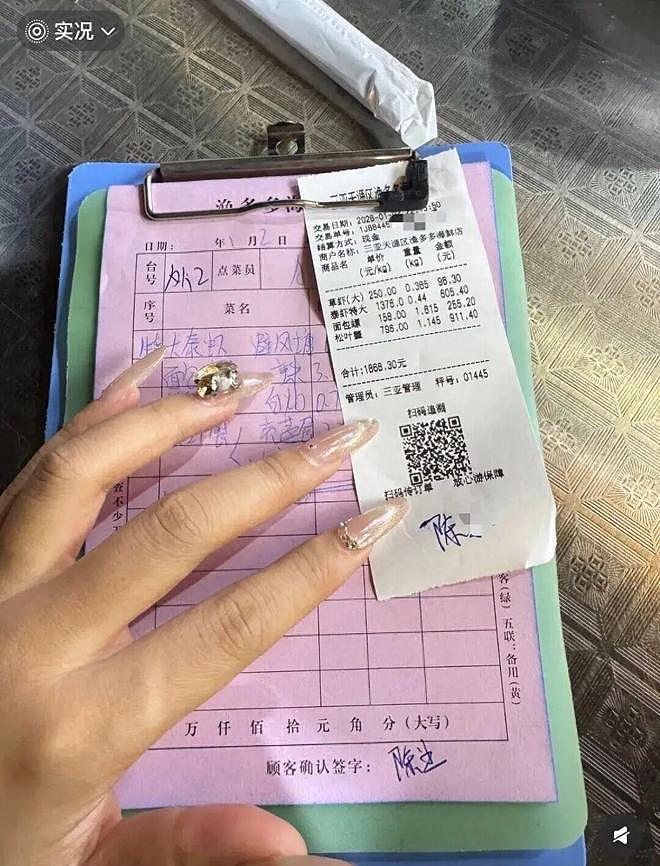 实况
渔多多海
三亚天涯区渔
交易日期：2026-01
交易单号：1J88445
结算方式：现金
商户名称：三亚天涯区渔多多海鲜店
商品名 单价 重量 金额
(元/kg) (kg) (元)
草虾(大) 250.00 0.385 96.30
泰虾特大 1376.0 0.44 605.40
面包螺 158.00 1.615 255.20
松叶蟹 796.00 1.145 911.40
合计：1868.30元
管理员：三亚管理 秤号：01445
扫码追溯
扫码传订单 放心游保障
陈
日期： 年1月2日
台号 外2 点菜员
序号 菜名
特大泰虾 避风塘
查不少
客(绿) 五联：备用(黄)
万 仟 佰 拾 元 角 分(大写)
顾客确认签字： 陈